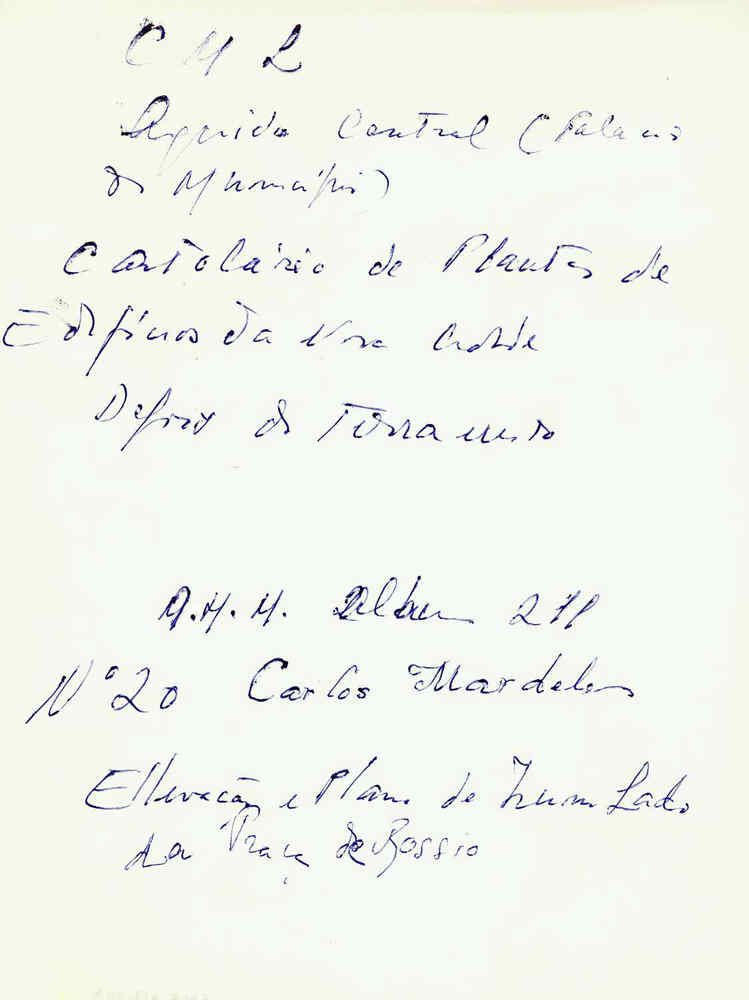 C M L
Central (Palacio
do Município)
Cartolário de Plantas de
Edifícios da Nova Cidade
Depois do Terramoto
A.H.M. Album
Nº 20 Carlos Mardel
Ellevação e Plano de hum Lado
da Praça de Rossio